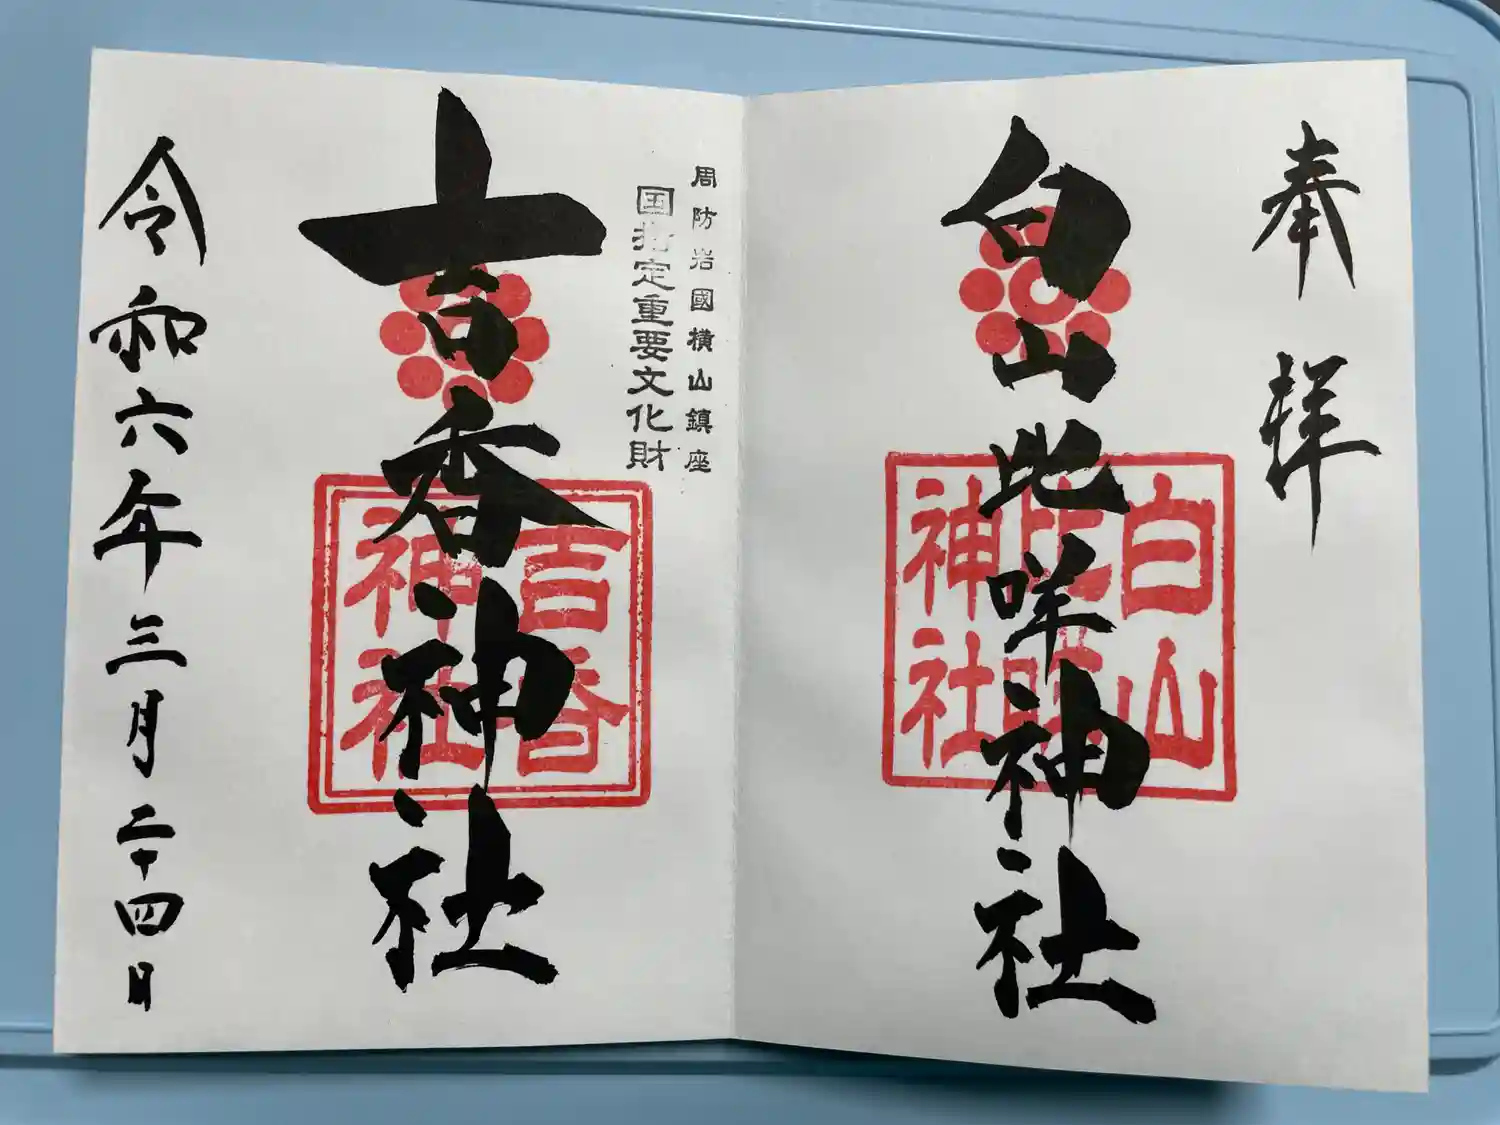 奉拝
白山比咩神社
白山
比咩
神社
周防岩國横山鎮座
国指定重要文化財
吉香神社
吉香
神社
令和六年三月二十四日